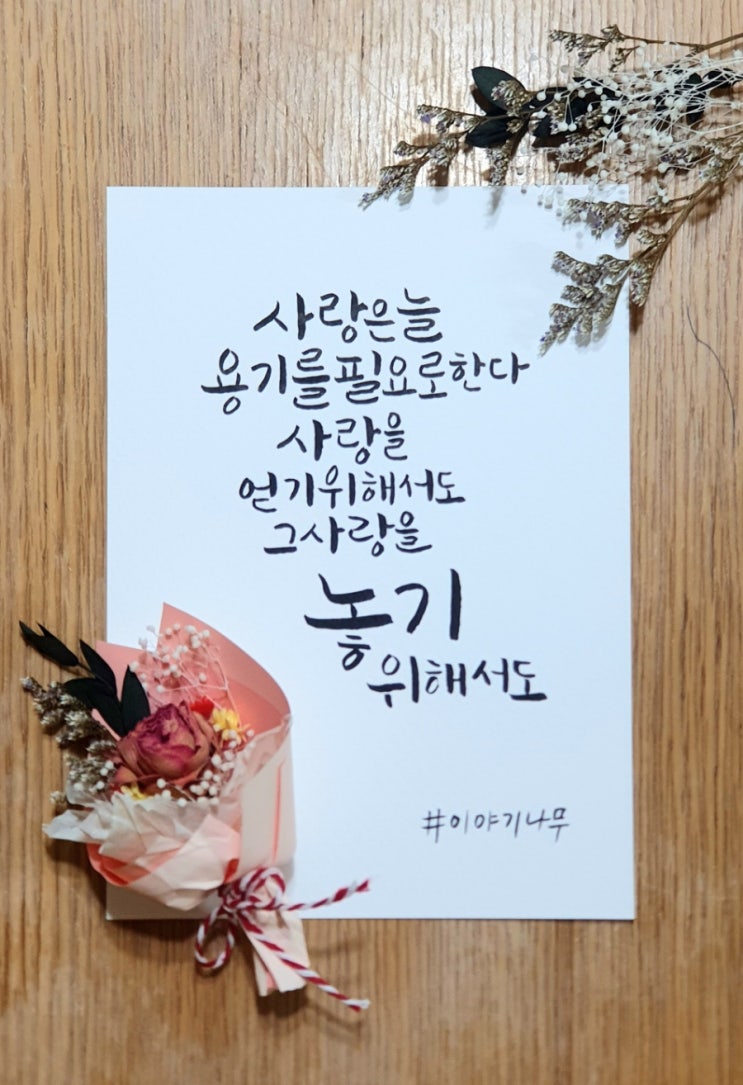 사랑은늘
용기를필요로한다
사랑을
얻기위해서도
그사랑을
놓기
위해서도
#이야기나무